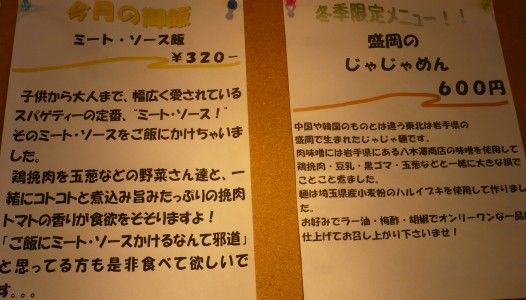 今月の御飯
ミート・ソース飯
￥320-
子供から大人まで、幅広く愛されている
スパゲティーの定番、“ミート・ソース！”
そのミート・ソースをご飯にかけちゃいま
した。
鶏挽肉を玉葱などの野菜さん達と、一
緒にコトコトと煮込み旨みたっぷりの挽肉
トマトの香りが食欲をそそりますよ！
「ご飯にミート・ソースかけるなんて邪道」
と思ってる方も是非食べて欲しいで
す。。。
冬季限定メニュー！！
盛岡の
じゃじゃめん
600円
中国や韓国のものとは違う東北は岩手県の
盛岡で生まれたじゃじゃ麺です。
肉味噌には岩手県にある八木澤商店の味噌を使用して
鶏挽肉・豆乳・黒ゴマ・玉葱などと一緒に大きな鍋で
ことこと煮ました。
麺は埼玉県産小麦粉のハルイブキを使用して作りまし
た。
お好みでラー油・梅酢・胡椒でオンリーワンな一品に
仕上げてお召し上がり下さいませ！